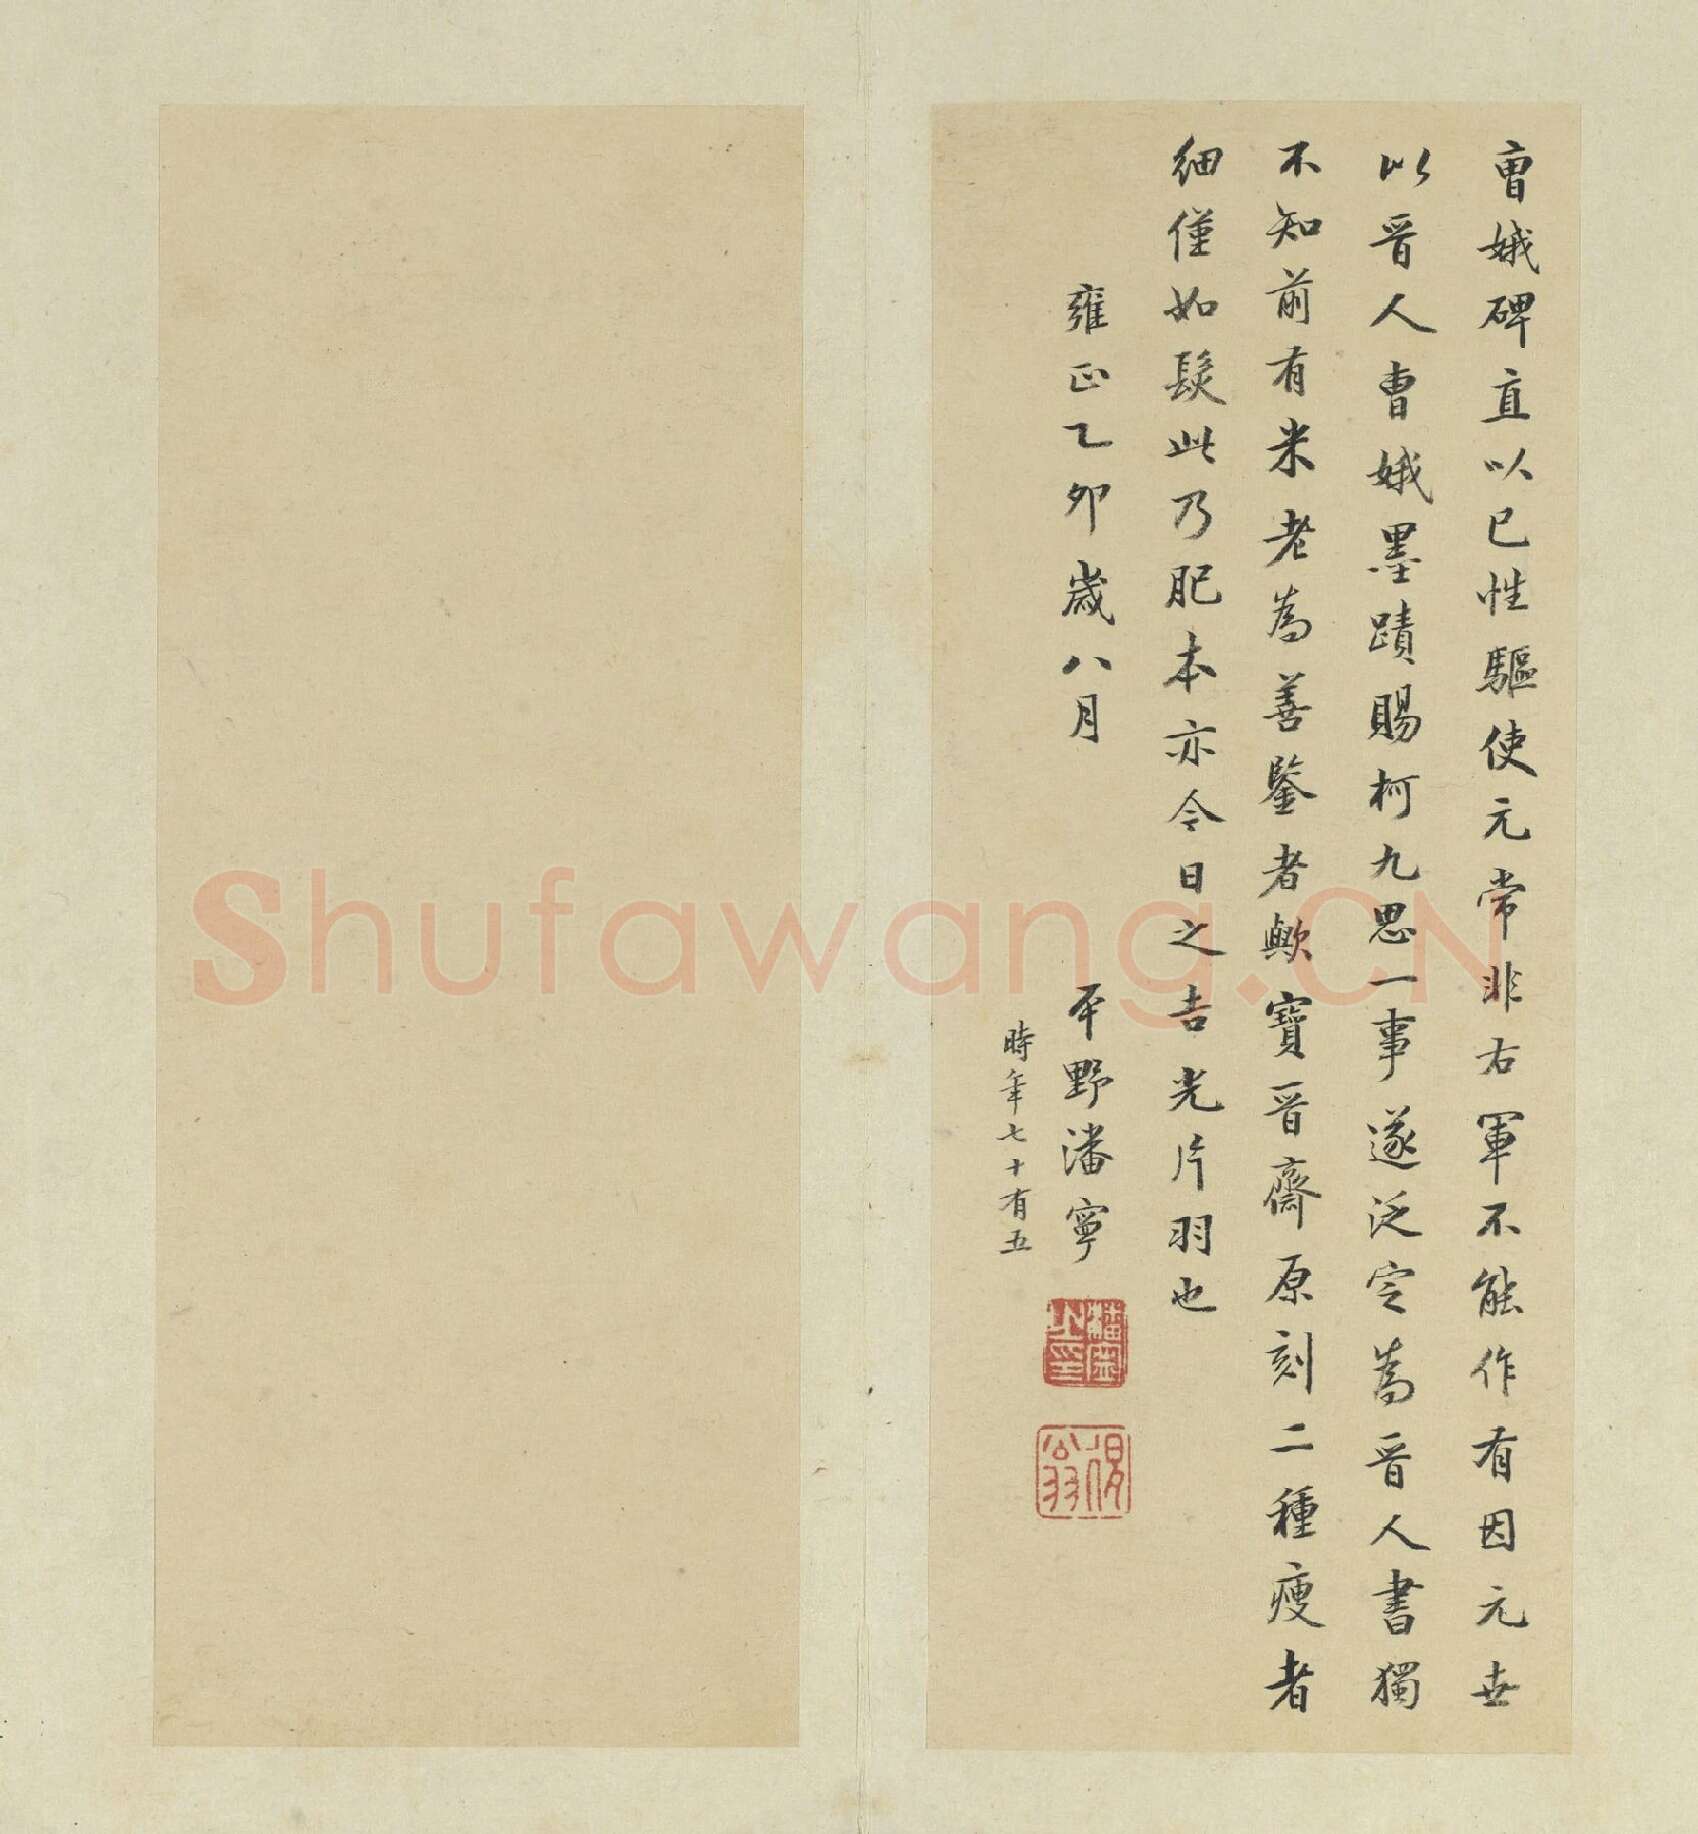 曺娥碑直以已性驅使元常非右軍不能作有因元世
以晉人曺娥墨蹟賜柯九思一事遂泛定為晉人書獨
不知前有米老為善鑒者歟寶晉齋原刻二種瘦者
細僅如髮此乃肥本亦今日之吉光片羽也
雍正乙卯歲八月
平野潘寧
時年七十有五
潘寧之印
公翁
Shufawang.CN